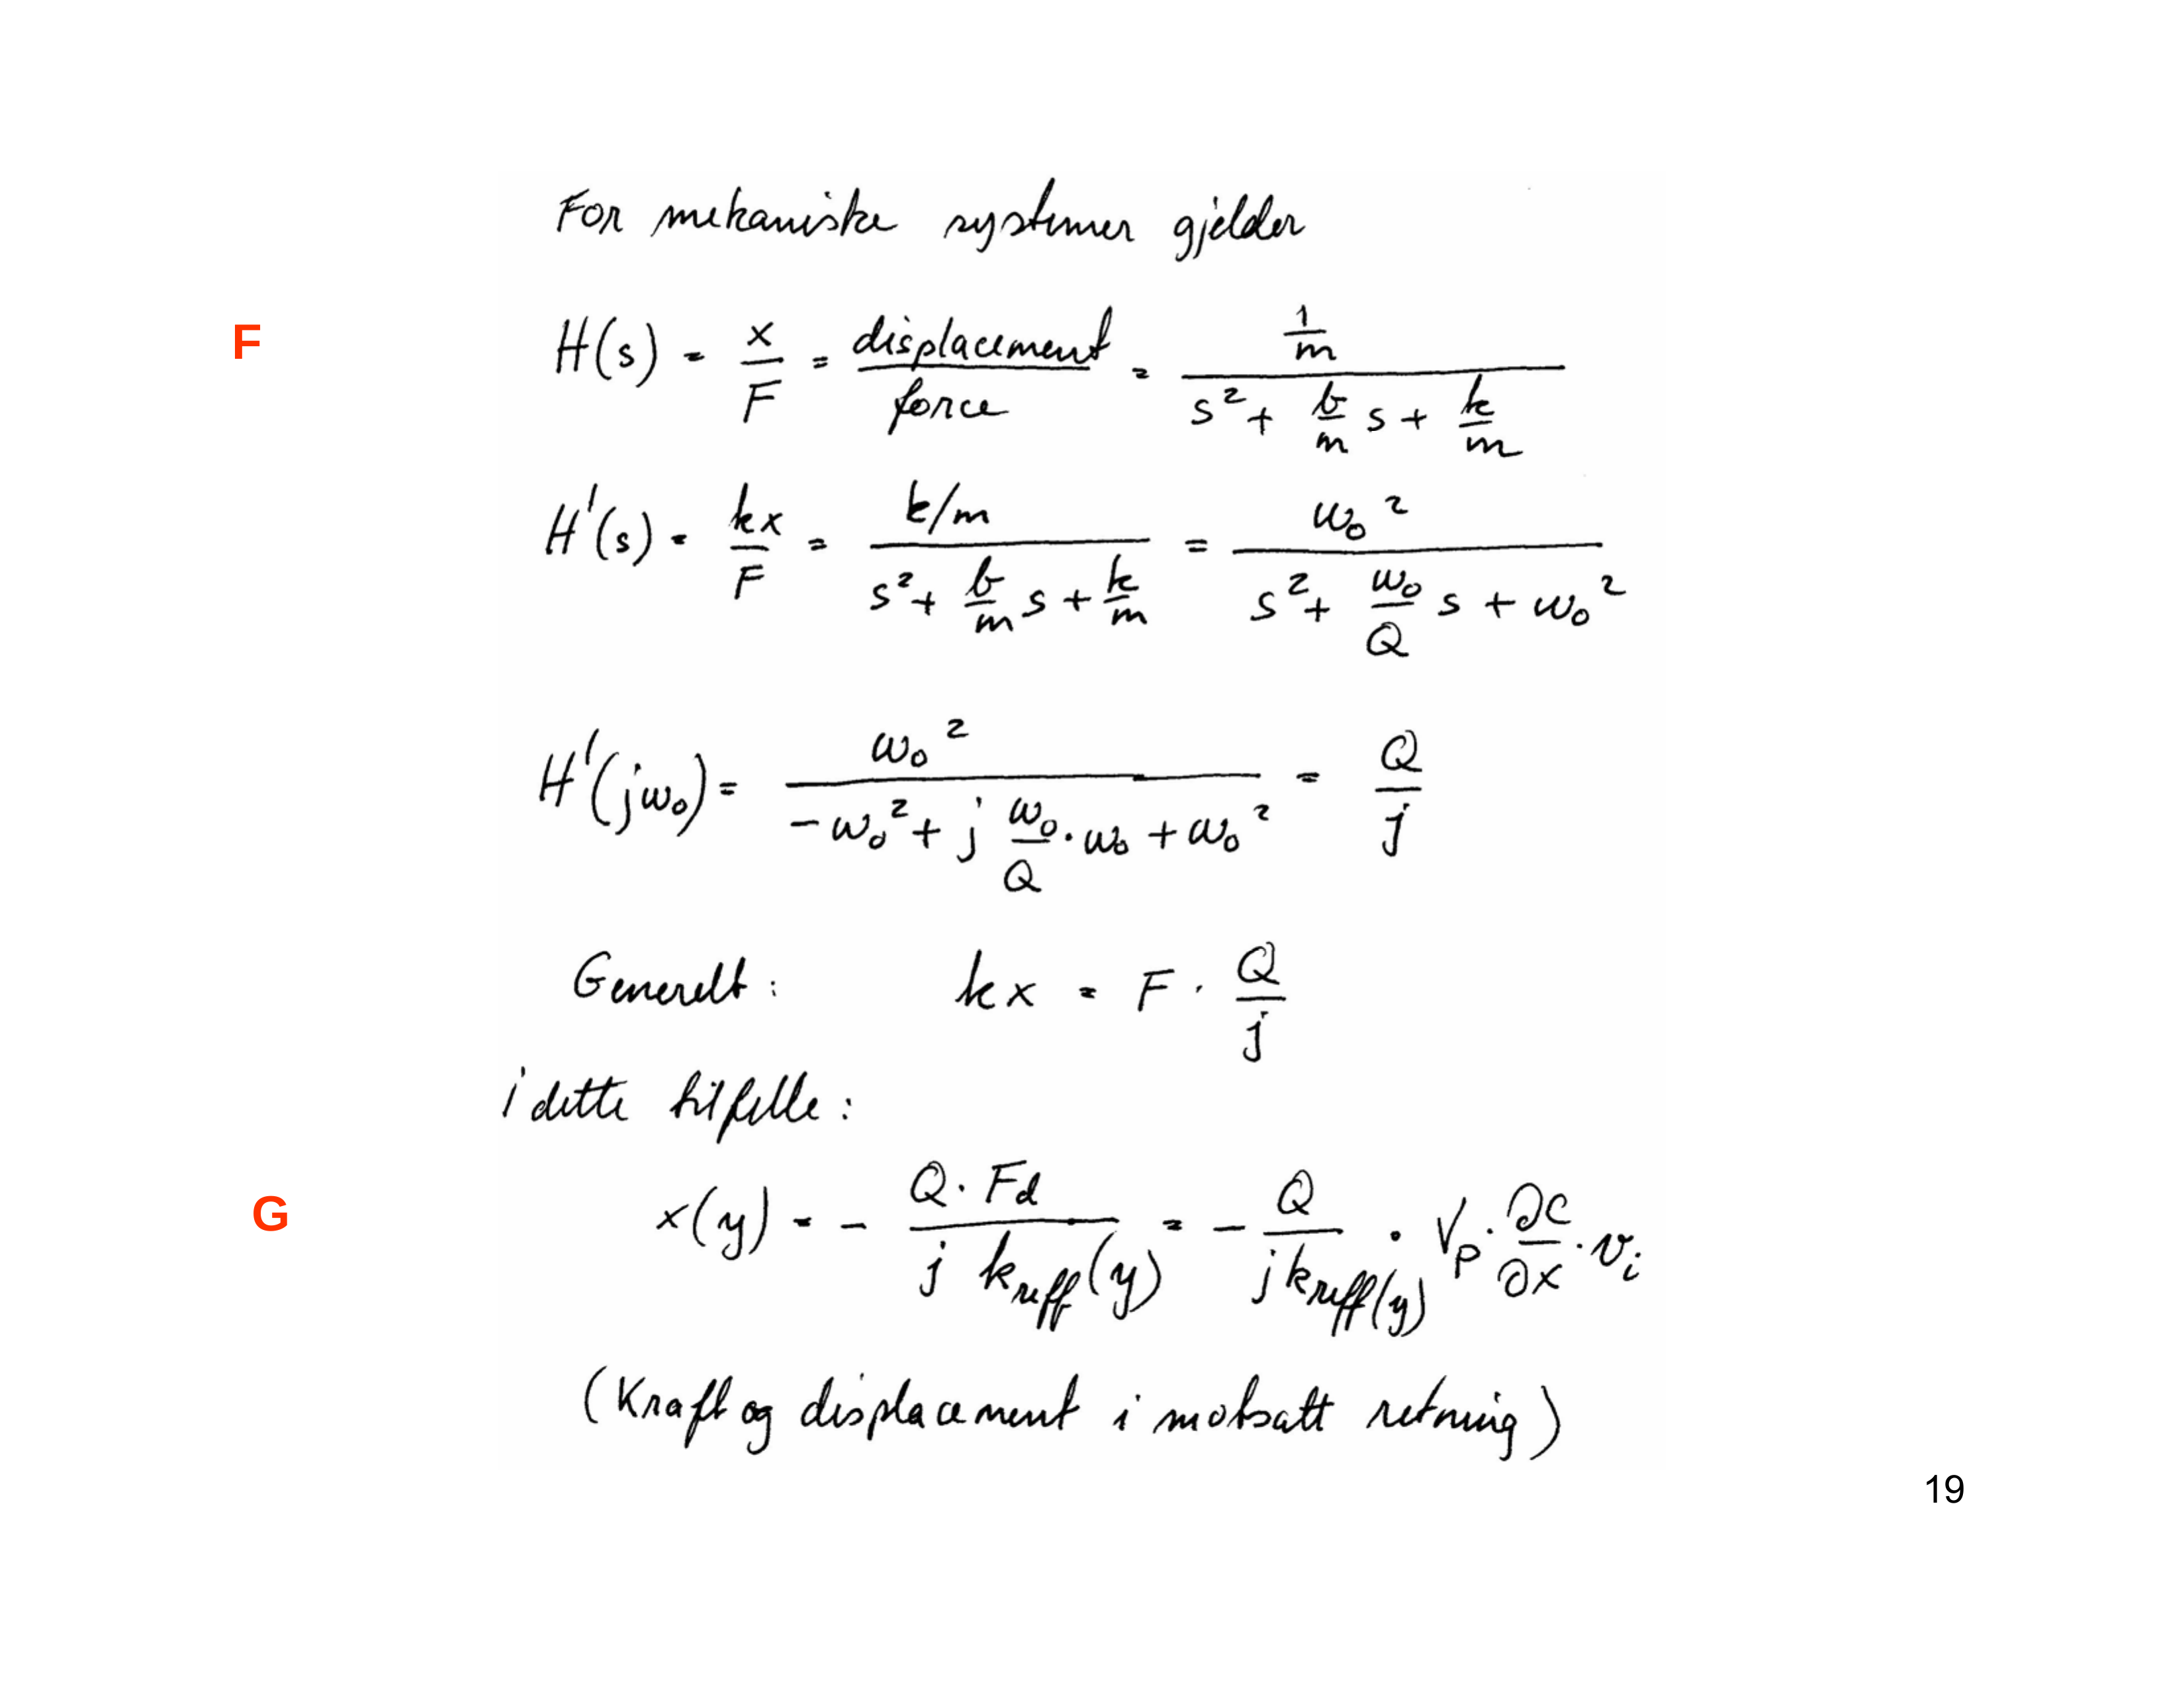 For mekaniske systemer gjelder
F H(s) = x/F = displacement/force = (1/m)/(s² + b/m s + k/m)
H'(s) = kx/F = (k/m)/(s² + b/m s + k/m) = ω₀²/(s² + ω₀/Q s + ω₀²)
H'(jω₀) = ω₀²/(-ω₀² + j ω₀/Q · ω₀ + ω₀²) = Q/j
Generelt: kx = F · Q/j
i dette tilfelle:
G x(y) = - Q·Fd/(j k_reff(y)) = - Q/(j k_reff(y)) · V_P · ∂C/∂x · v_i
(Kraft og displacement i motsatt retning)
19